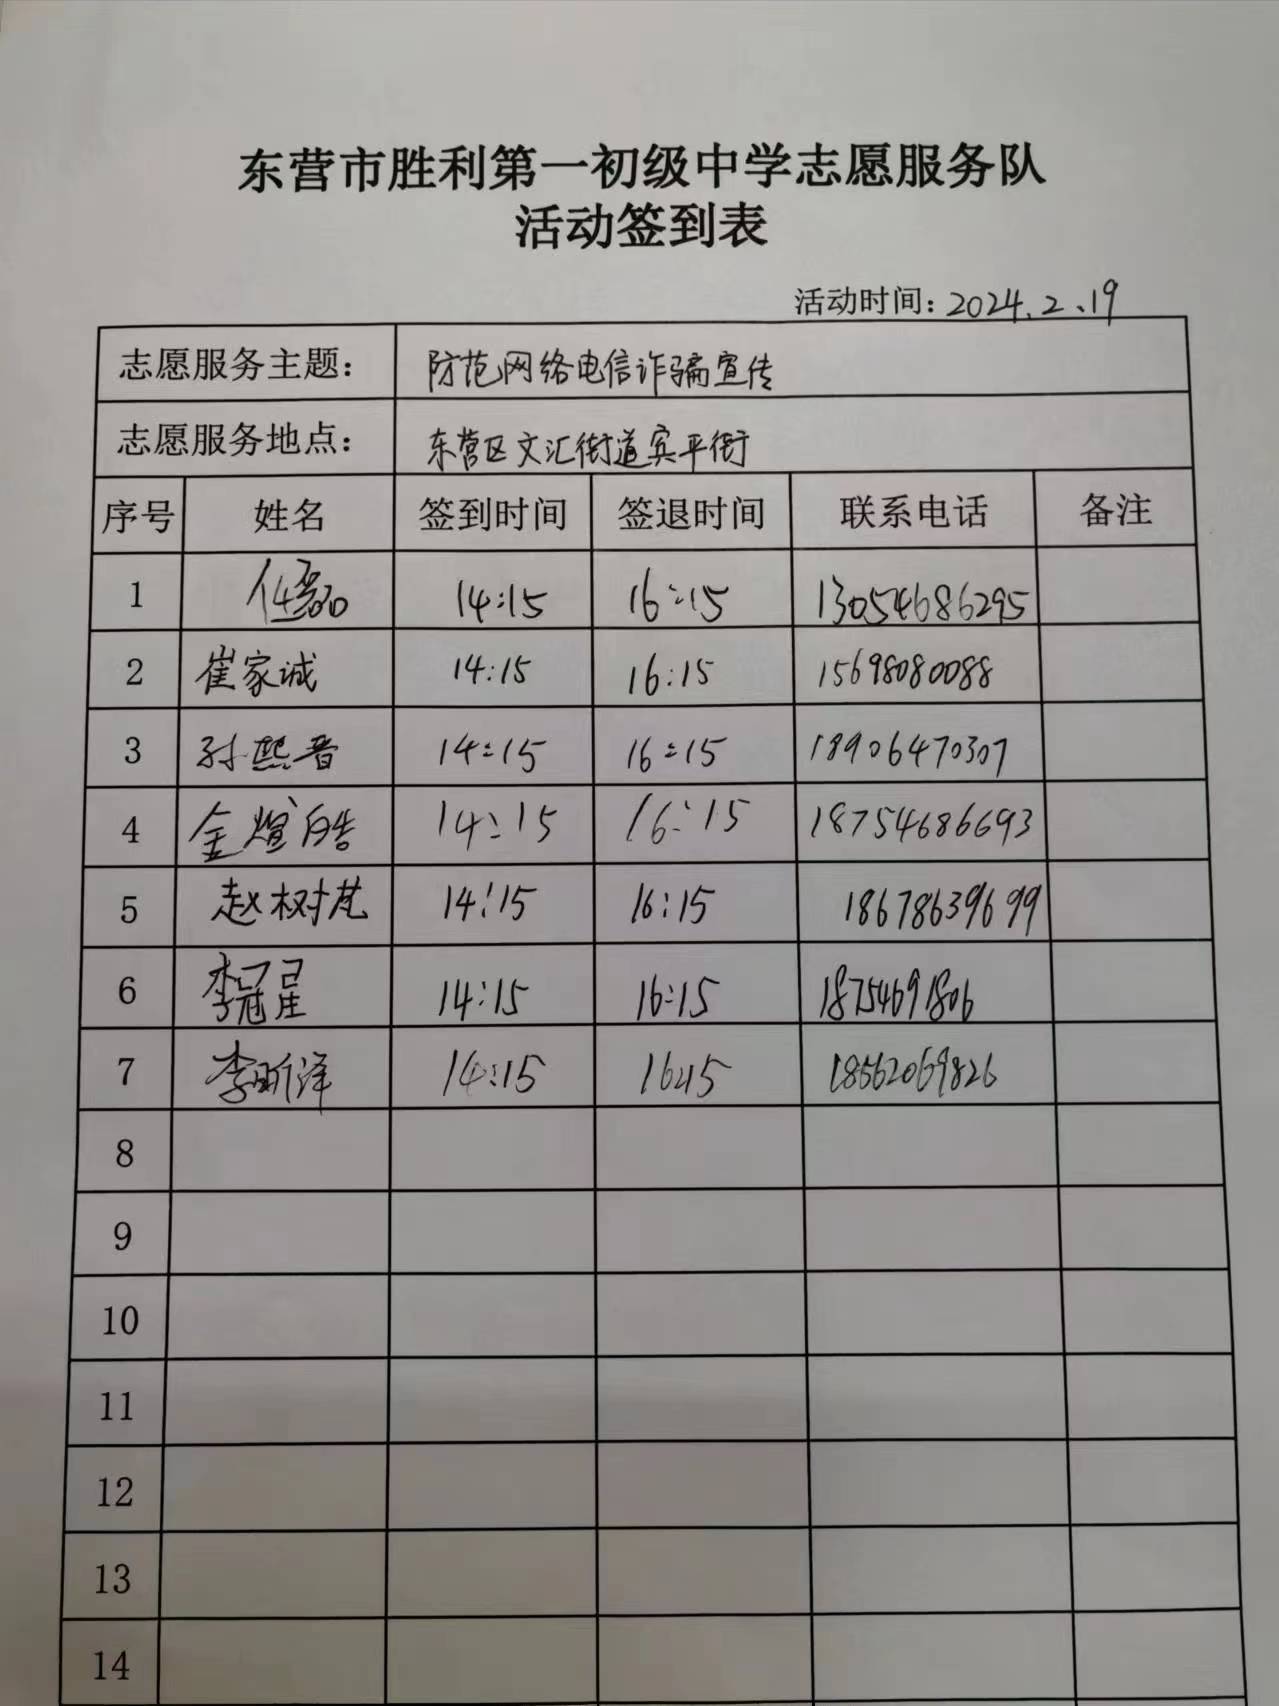 东营市胜利第一初级中学志愿服务队
活动签到表
活动时间：2024.2.19
志愿服务主题： 防范网络电信诈骗宣传
志愿服务地点： 东营区文汇街道宾平街
序号 姓名 签到时间 签退时间 联系电话 备注
1 14:15 16:15 13054686295
2 崔家诚 14:15 16:15 15698080088
3 孙熙晋 14:15 16:15 18906470307
4 金煊皓 14:15 16:15 18754686693
5 赵树艺 14:15 16:15 18678639699
6 李冠星 14:15 16:15 18754691806
7 李昕泽 14:15 16:15 18562069826
8
9
10
11
12
13
14